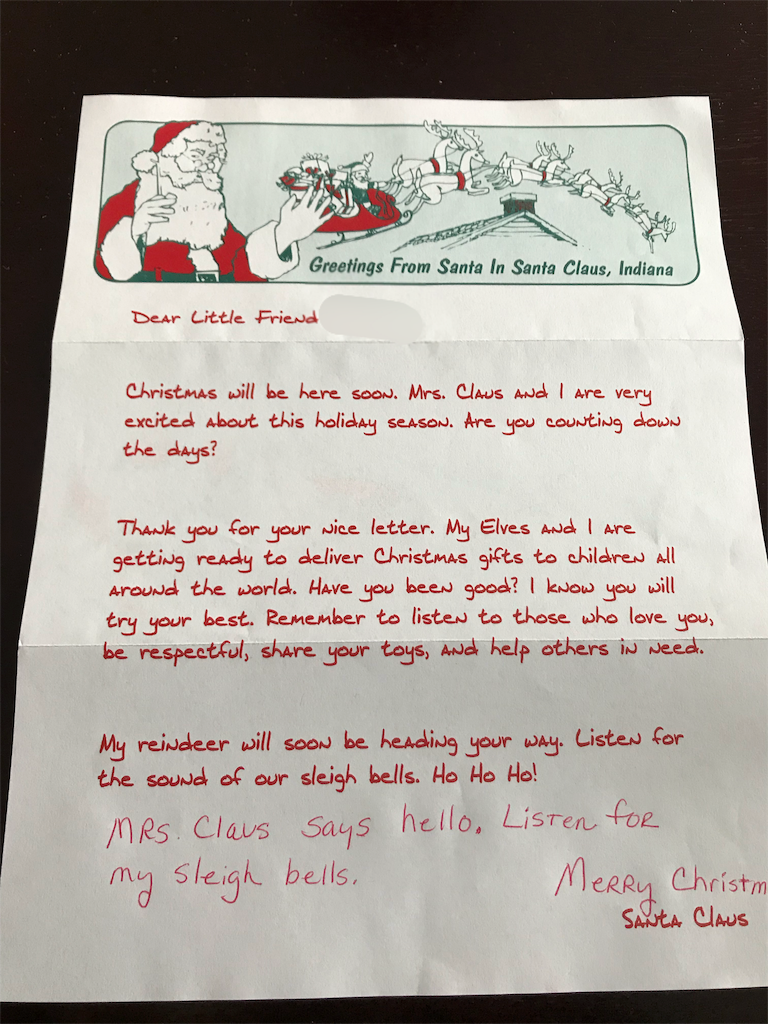 Greetings From Santa In Santa Claus, Indiana
Dear Little Friend
Christmas will be here soon. Mrs. Claus and I are very
excited about this holiday season. Are you counting down
the days?
Thank you for your nice letter. My Elves and I are
getting ready to deliver Christmas gifts to children all
around the world. Have you been good? I know you will
try your best. Remember to listen to those who love you,
be respectful, share your toys, and help others in need.
My reindeer will soon be heading your way. Listen for
the sound of our sleigh bells. Ho Ho Ho!
Mrs. Claus says hello. Listen for
my sleigh bells.
Merry Christm
Santa Claus